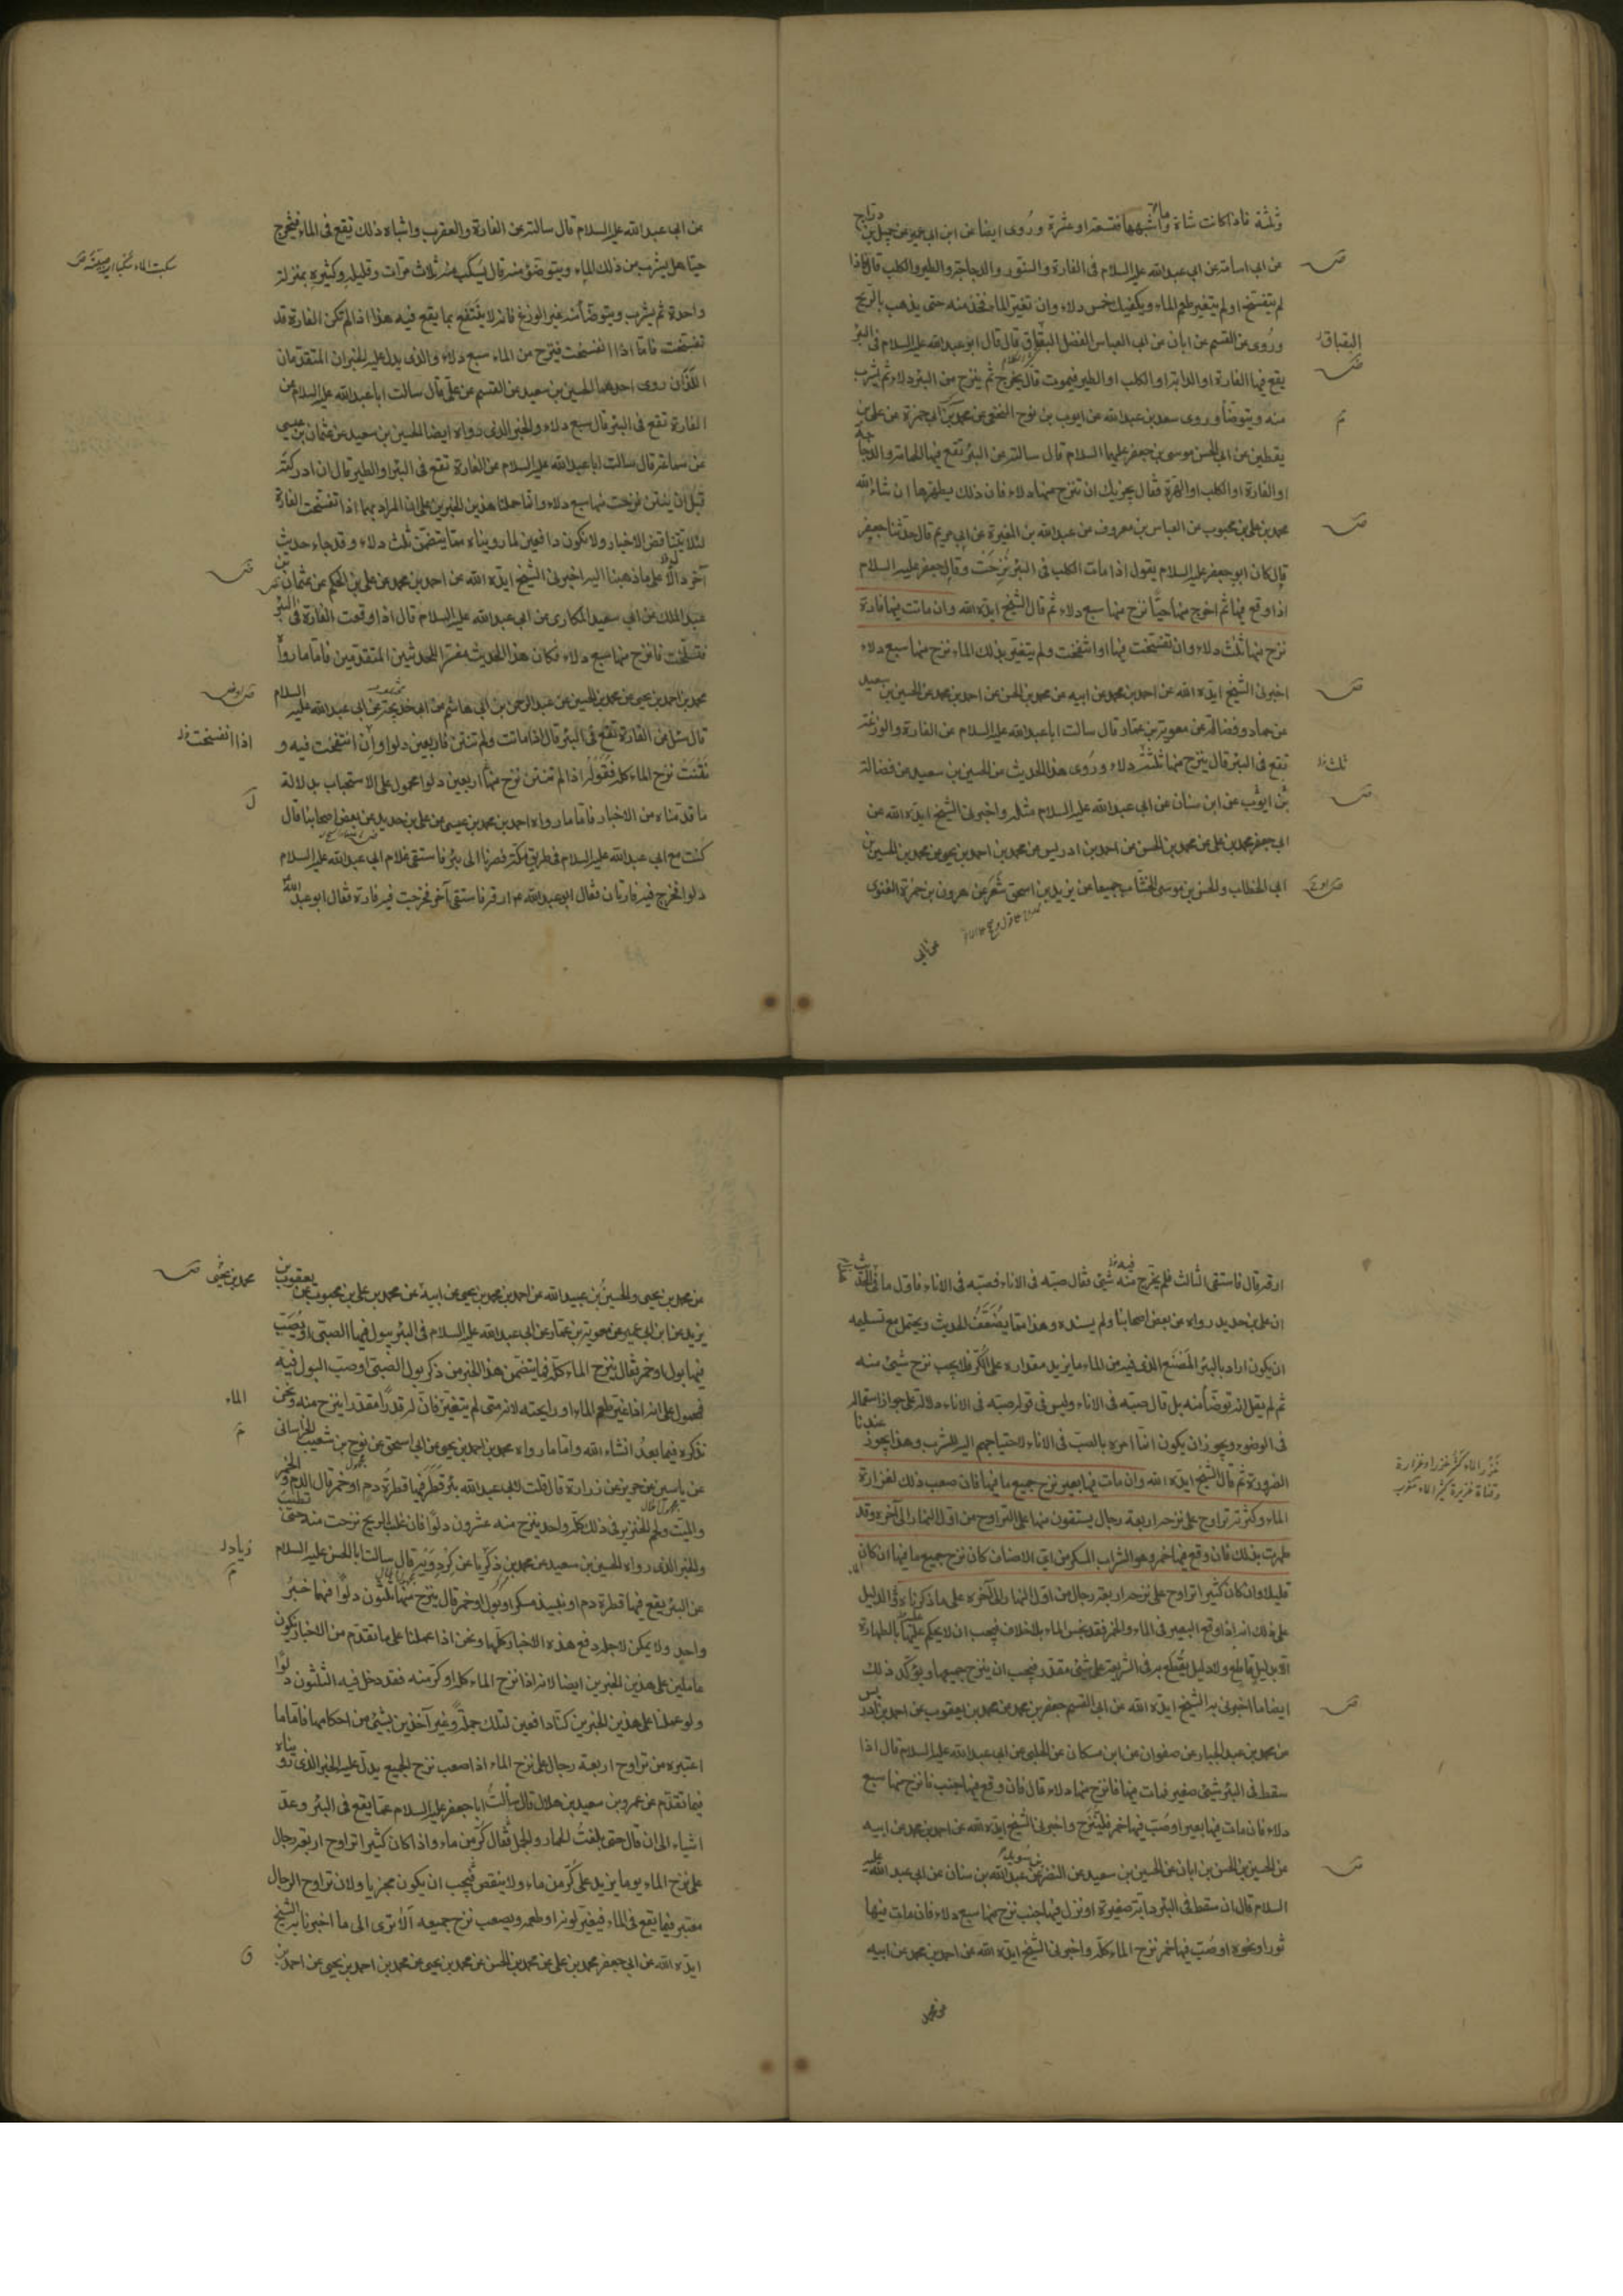 وثلثة فاذا كانت شاة وما أشبهها فتسعة او عشرة وروى ايضا عن ابن ابي عمير عن جميل بن دراج
عن ابي اسامة عن ابي عبد الله عليه السلام في الفارة والسنور والدجاجة والطير والكلب قال فاذا
لم يتفسخ او لم يتغير طعم الماء ويكفيك خمس دلاء وان تغير الماء فخذ منه حتى يذهب بالريح
وروى عن القسم عن ابان عن ابي العباس الفضل البقباق قال قال ابو عبد الله عليه السلام في البئر
البقباق
يقع فيها الفارة او الدابة او الكلب او الطير فيموت قال يخرج ثم ينزح من البئر دلاء ثم يشرب
منه ويتوضأ وروى سعد بن عبد الله عن ايوب بن نوح النخعي عن محمد بن ابي حمزة عن علي بن
يقطين عن ابي الحسن موسى بن جعفر عليهما السلام قال سالته عن البئر تقع فيها الحمامة والدجاجة
او الفارة او الكلب او الهرة فقال يجزيك ان تنزح منها دلاء فان ذلك يطهرها ان شاء الله
محمد بن علي بن محبوب عن العباس بن معروف عن عبد الله بن المغيرة عن ابي مريم قال حدثنا جعفر
قال كان ابو جعفر عليه السلام يقول اذا مات الكلب في البئر نزحت وقال جعفر عليه السلام
اذا وقع فيها ثم اخرج منها حيا نزح منها سبع دلاء ثم قال الشيخ ايده الله وان ماتت فيها فارة
نزح منها ثلث دلاء وان تفسخت فيها او انتفخت ولم يتغير بذلك الماء نزح منها سبع دلاء
اخبرني الشيخ ايده الله عن احمد بن محمد عن ابيه عن محمد بن الحسن عن احمد بن محمد عن الحسين بن سعيد
عن حماد وفضالة عن معوية بن عمار قال سالت ابا عبد الله عليه السلام عن الفارة والوزغة
تقع في البئر قال ينزح منها ثلثة دلاء وروى هذا الحديث عن الحسين بن سعيد عن فضالة
ثلث
بن ايوب عن ابن سنان عن ابي عبد الله عليه السلام مثله واخبرني الشيخ ايده الله عن
ابي جعفر محمد بن علي عن محمد بن الحسن عن احمد بن ادريس عن محمد بن احمد بن يحيى عن محمد بن الحسين بن
ابي الخطاب والحسن بن موسى الخشاب جميعا عن يزيد بن اسحق شعر عن هرون بن حمزة الغنوي
عن ابي
عن ابي عبد الله عليه السلام قال سالته عن الفارة والعقرب واشباه ذلك يقع في الماء فيخرج
حيا هل يشرب من ذلك الماء ويتوضؤ منه قال يسكب منه ثلاث مرات وقليله وكثيره بمنزلة
واحدة ثم يشرب ويتوضأ منه غير الوزغ فانه لا ينتفع بما يقع فيه هذا اذا لم تكن الفارة قد
تفسخت فاما اذا انفسخت فينزح من الماء سبع دلاء والذي يدل عليه الخبران المتقدمان
اللذان روى احدهما الحسين بن سعيد عن القسم عن علي قال سالت ابا عبد الله عليه السلام عن
الفارة تقع في البئر قال سبع دلاء والخبر الذي رواه ايضا الحسين بن سعيد عن عثمان بن عيسى
عن سماعة قال سالت ابا عبد الله عليه السلام عن الفارة تقع في البئر او الطير قال ان ادركته
قبل ان ينتن نزحت منها سبع دلاء وانما حملنا هذين الخبرين على ان المراد بهما اذا تفسخت الفارة
لئلا يتناقض الاخبار ولا نكون دافعين لما رويناه مما يتضمن ثلث دلاء وقد جاء حديث
آخر دالا على ما ذهبنا اليه اخبرني الشيخ ايده الله عن احمد بن محمد عن علي بن الحكم عن عثمان بن
عبد الملك عن ابي سعيد المكاري عن ابي عبد الله عليه السلام قال اذا وقعت الفارة في البئر
فتسلخت فانزح منها سبع دلاء فكان هذا الحديث مفسرا للحديثين المتقدمين فاما ما رواه
محمد بن احمد بن يحيى عن محمد بن الحسين عن عبد الرحمن بن ابي هاشم عن ابي خديجة عن ابي عبد الله عليه السلام
قال سئل عن الفارة تقع في البئر قال اذا ماتت ولم تنتن فاربعين دلوا وان انتفخت فيه و
اذا انفسخت
نتنت نزح الماء كله فقوله اذا لم تنتن نزح منها اربعين دلوا محمول على الاستحباب بدلالة
ما قدمناه من الاخبار فاما ما رواه احمد بن محمد بن عيسى عن علي بن حديد عن بعض اصحابنا قال
كنت مع ابي عبد الله عليه السلام في طريق مكة فصرنا الى بئر فاستقى غلام ابي عبد الله عليه السلام
دلوا فخرج فيه فارتان فقال ابو عبد الله ارقه فاستقى آخر فخرجت فيه فارة فقال ابو عبد الله
ارقه قال فاستقى الثالث فلم يخرج منه شئ فقال صبه في الاناء فصبه في الاناء فاول ما في الحديث
ان علي بن حديد رواه عن بعض اصحابنا ولم يسنده وهذا مما يضعف الحديث ويحتمل مع تسليمه
ان يكون اراد بالبئر المصنع الذي فيه من الماء ما يزيد مقداره على الكر فلا يجب نزح شئ منه
ثم لم يقل انه توضأ منه بل قال صبه في الاناء وليس في قوله صبه في الاناء دلالة على جواز استعماله
في الوضوء ويجوز ان يكون انما امره بالصب في الاناء لاحتياجهم اليه للشرب وهذا يجوز عندنا
الضرورة ثم قال الشيخ ايده الله وان مات فيها بعير نزح جميع ما فيها فان صعب ذلك لغزارة
الماء وكثرته تراوح على نزحه اربعة رجال يستقون منها على التراوح من اول النهار الى آخره وقد
طهرت بذلك فان وقع فيها خمر وهو الشراب المسكر من اي الاصناف كان نزح جميع ما فيها ان كان
قليلا وان كان كثيرا تراوح على نزحه اربعة رجال من اول النهار الى آخره على ما ذكرناه والدليل
على ذلك انه اذا وقع البعير في الماء والخمر فقد نجس الماء بلا خلاف فيجب ان لا يحكم عليها بالطهارة
الا بدليل قاطع ولا دليل يقطع به في الشريعة على شئ مقدر فيجب ان ينزح جميعها ويؤكد ذلك
ايضا ما اخبرني به الشيخ ايده الله عن ابي القسم جعفر بن محمد عن محمد بن يعقوب عن احمد بن ادريس
عن محمد بن عبد الجبار عن صفوان عن ابن مسكان عن الحلبي عن ابي عبد الله عليه السلام قال اذا
سقط في البئر شئ صغير فمات فيها فانزح منها دلاء قال فان وقع فيها جنب فانزح منها سبع
دلاء فان مات فيها بعير او صب فيها خمر فلينزح واخبرني الشيخ ايده الله عن احمد بن محمد عن ابيه
عن الحسين بن الحسن بن ابان عن الحسين بن سعيد عن النضر بن سويد عن عبد الله بن سنان عن ابي عبد الله عليه
السلام قال ان سقط في البئر دابة صغيرة او نزل فيها جنب نزح منها سبع دلاء فان مات فيها
ثور او نحوه او صب فيها خمر نزح الماء كله واخبرني الشيخ ايده الله عن احمد بن محمد عن ابيه
عن محمد
عن محمد بن يحيى والحسين بن عبيد الله عن احمد بن محمد بن يحيى عن ابيه عن محمد بن علي بن محبوب عن يعقوب بن
محمد بن يحيى
يزيد عن ابن ابي عمير عن معوية بن عمار عن ابي عبد الله عليه السلام في البئر يبول فيها الصبي او يصب
فيها بول او خمر فقال ينزح الماء كله فما يتضمن هذا الخبر من ذكر بول الصبي او صب البول فيه
فمحمول على انه اذا غير طعم الماء او رايحته لانه متى لم يتغير فان له قدرا مقدرا ينزح منه ونحن
الماء
نذكره فيما بعد انشاء الله واما ما رواه محمد بن احمد بن يحيى عن ابي اسحق عن نوح بن شعيب الخراساني
عن ياسين عن حريز عن زرارة قال قلت لابي عبد الله بئر قطر فيها قطرة دم او خمر قال الدم والخمر
والميت ولحم الخنزير في ذلك كله واحد ينزح منه عشرون دلوا فان غلب الريح نزحت منه حتى تطيب
والخبر الذي رواه الحسين بن سعيد عن محمد بن زكريا عن كردويه قال سالت ابا الحسن عليه السلام
زياد
عن البئر يقع فيها قطرة دم او نبيذ مسكر او بول او خمر قال ينزح منها ثلثون دلوا فهما خبر
واحد ولا يمكن لاجله دفع هذه الاخبار كلها ونحن اذا عملنا على ما تقدم من الاخبار نكون
عاملين على هذين الخبرين ايضا لانه اذا نزح الماء كله او كر منه فقد دخل فيه الثلثون دلوا
ولو عملنا على هذين الخبرين كنا دافعين لتلك جملة وغير آخذين بشئ من احكامها فاما ما
اعتبره من تراوح اربعة رجال على نزح الماء اذا صعب نزح الجميع يدل عليه الخبر الذي رويناه
فيما تقدم عن عمرو بن سعيد بن هلال قال سألت ابا جعفر عليه السلام عما يقع في البئر وعد
اشياء الى ان قال حتى بلغت الحمار والجمل فقال كر من ماء واذا كان كثيرا تراوح اربعة رجال
على نزح الماء يوما يزيد على كر من ماء ولا ينقص فيجب ان يكون مجزيا ولان تراوح الرجال
معتبر فيما يقع في الماء فيغير لونه او طعمه ويصعب نزح جميعه ألا ترى الى ما اخبرنا به الشيخ
ايده الله عن ابي جعفر محمد بن علي عن محمد بن الحسن عن محمد بن يحيى عن محمد بن احمد بن يحيى عن احمد بن